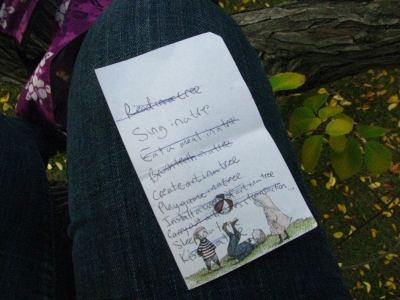 Read in a tree
Sing in a tree
Eat a meal in a tree
Brush teeth in a tree
Create art in a tree
Play game in a tree
Install art in a tree
in
Sleep
K